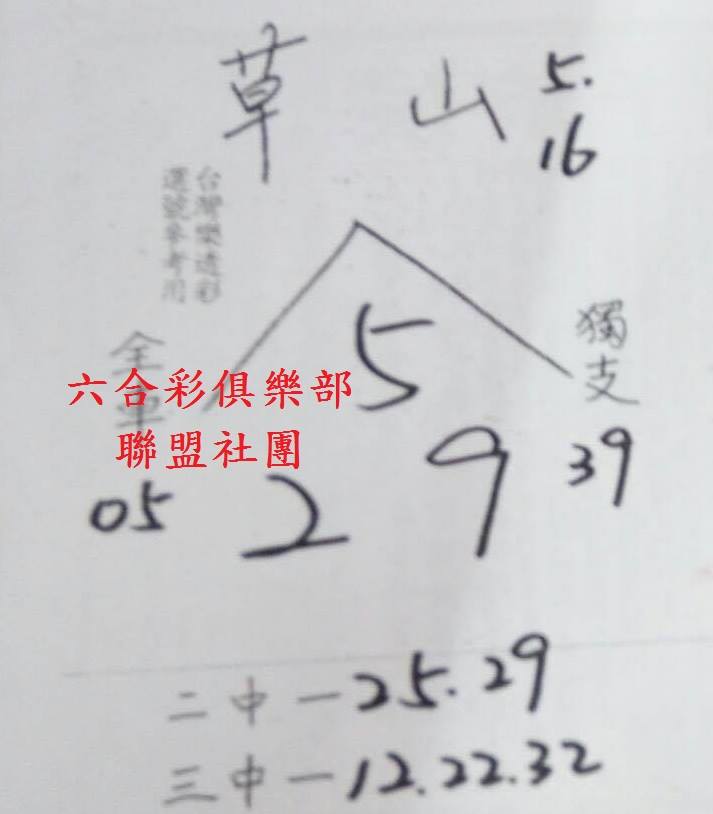 草山 5.
16
台灣樂透彩
選號參考用
5
獨支
全車
六合彩俱樂部
聯盟社團
05
2 9
39
二中一25.29
三中一12.22.32